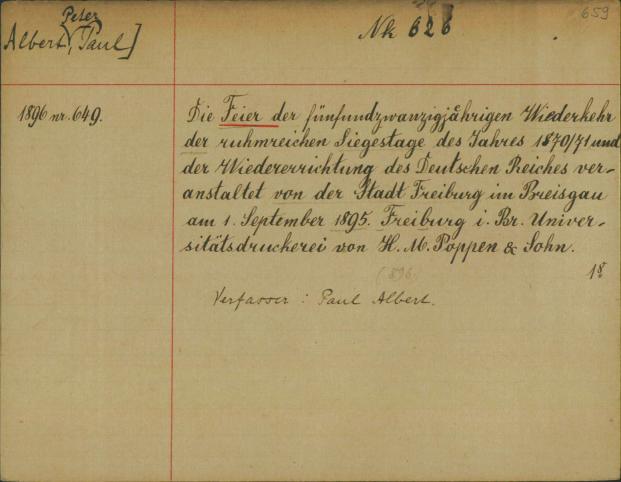 Peter
Albert, Paul]
Nk 626
659
1896 nr. 649.
Die Feier der fünfundzwanzigjährigen Wiederkehr
der ruhmreichen Siegestage des Jahres 1870/71 und
der Wiedererrichtung des Deutschen Reiches ver-
anstaltet von der Stadt Freiburg im Breisgau
am 1. September 1895. Freiburg i. Br. Univer-
sitätsdruckerei von H. M. Poppen & Sohn.
(896
Verfasser : Paul Albert.